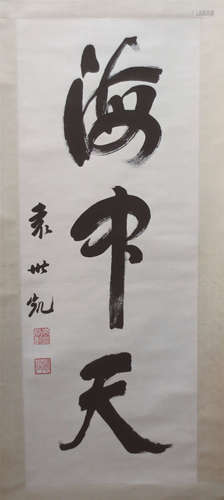 海中天
袁世凯